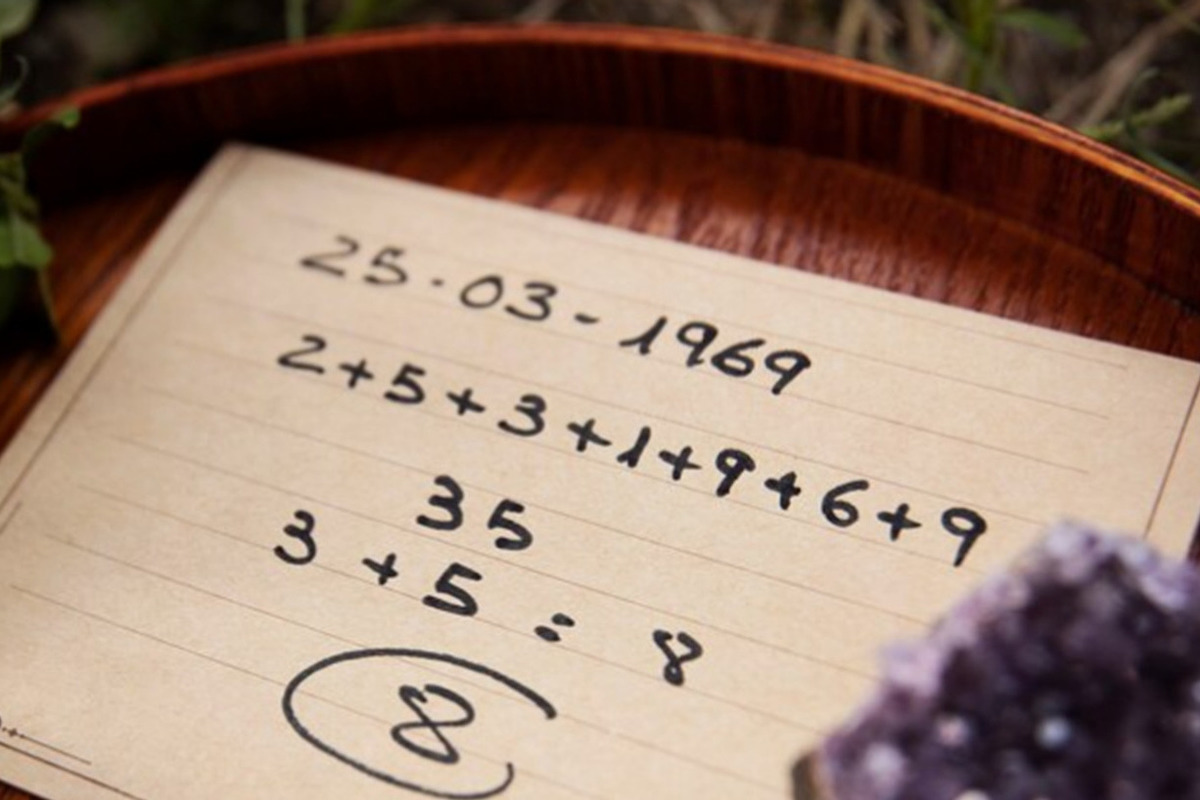 25.03-1969
2+5+3+1+9+6+9
35
3+5=8
8